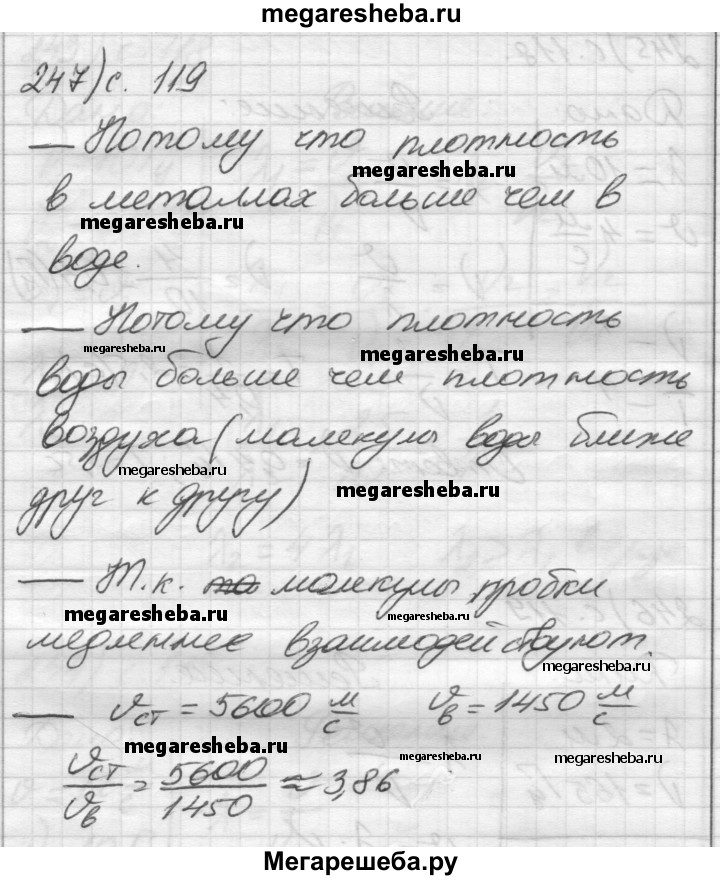 megaresheba.ru
247) с. 119
— Потому что плотность
megaresheba.ru
в металлах больше чем в
megaresheba.ru
воде.
— Потому что плотность
megaresheba.ru
megaresheba.ru
воды больше чем плотность
воздуха (молекулы воды ближе
megaresheba.ru
друг к другу)
megaresheba.ru
— Т.к. молекулы пробки
megaresheba.ru
megaresheba.ru
медленнее взаимодействуют.
megaresheba.ru
— υст = 5600 м/с υв = 1450 м/с
megaresheba.ru
megaresheba.ru
megaresheba.ru
υст/υв = 5600/1450 ≈ 3,86
Мегарешеба.ру